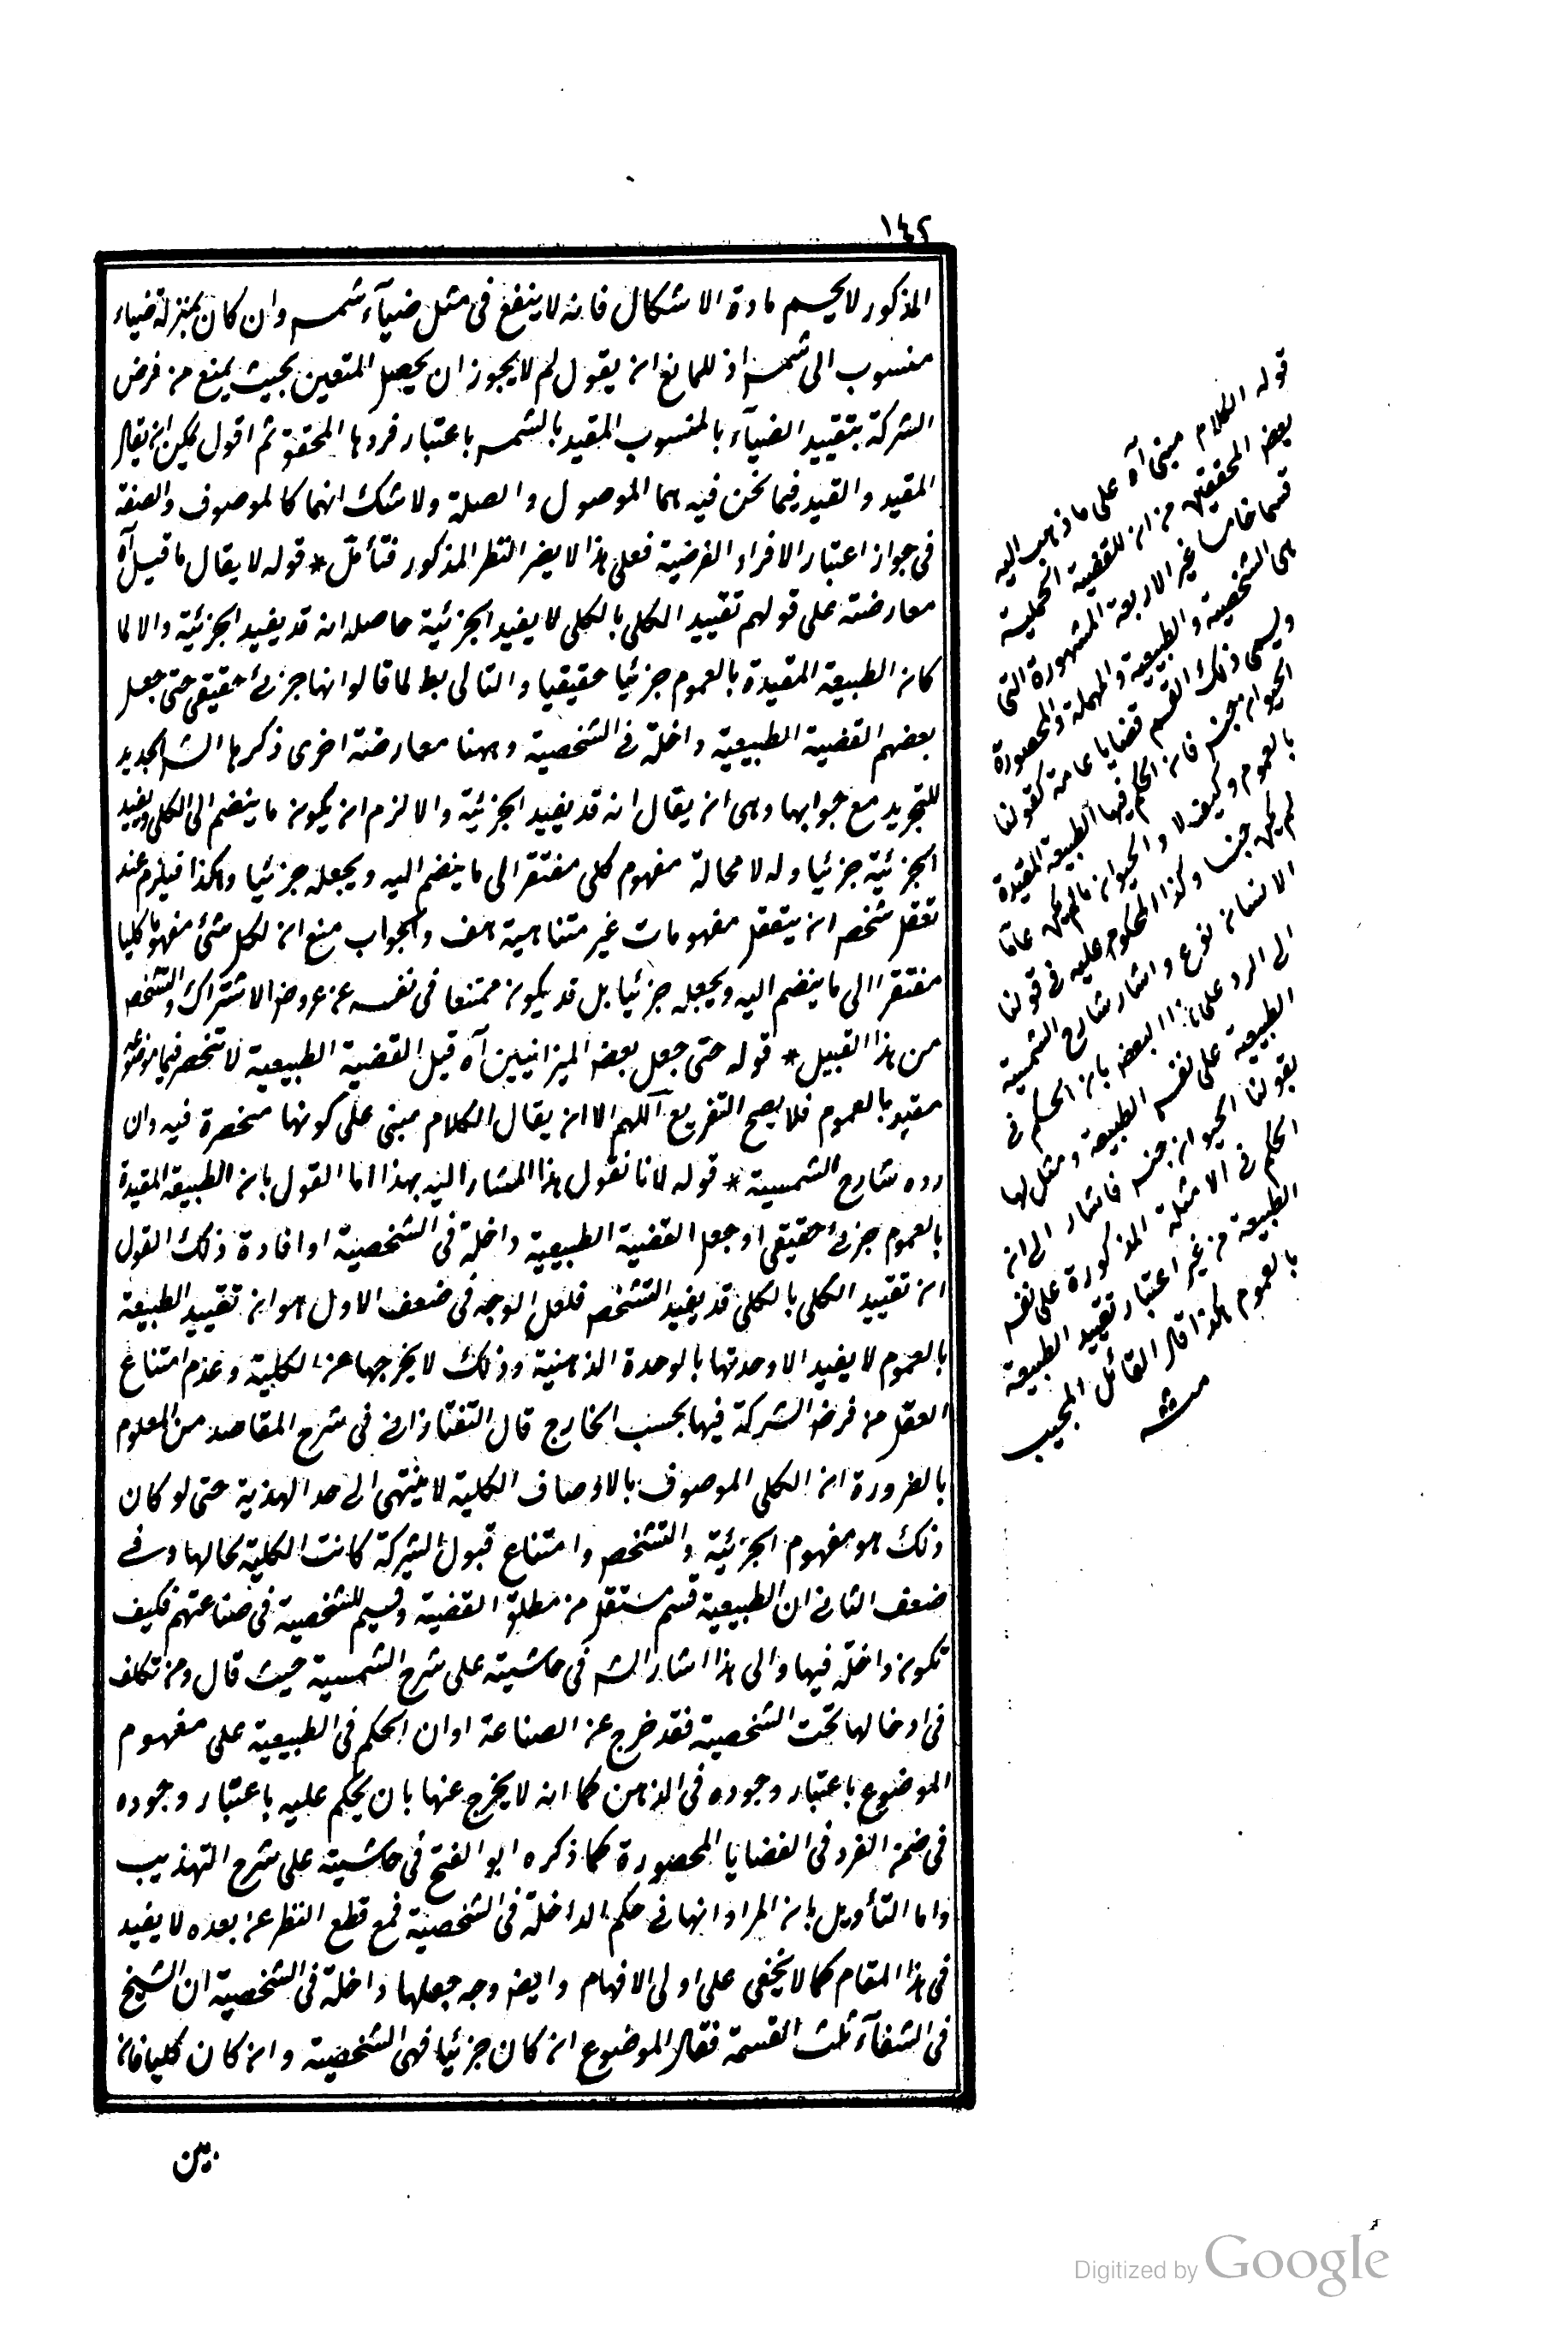 ١٤٢
المذكور لا يحسم مادة الاشكال فانه لا ينفع فى مثل ضيآء شمس وان كان بمنزلة ضياء
منسوب الى شمس اذ للمانع ان يقول لم لا يجوز ان يحصل المتعين بحيث يمنع من فرض
الشركة بتقييد الضيآء بالمنسوب المقيد بالشمس باعتبار فردها المحقق ثم اقول يمكن ان يقال
المقيد والقيد فيما نحن فيه هما الموصول والصلة ولا شك انهما كالموصوف والصفة
فى جواز اعتبار الافراد الفرضية فعلى هذا لا يضر النظر المذكور فتأمل * قوله لا يقال ما قيل آه
معارضة على قولهم تقييد الكلى بالكلى لا يفيد الجزئية حاصله انه قد يفيد الجزئية والا لما
كان الطبيعة المقيدة بالعموم جزئيا حقيقيا والتالى بط لما قالوا انها جزئ حقيقى حتى جعل
بعضهم القضية الطبيعية داخلة فى الشخصية وههنا معارضة اخرى ذكرها الشه الجديد
للتجريد مع جوابها وهى ان يقال انه قد يفيد الجزئية والا لزم ان يكون ما ينضم الى الكلى ويفيد
الجزئية جزئيا وله لا محالة مفهوم كلى مفتقر الى ما ينضم اليه ويجعله جزئيا وهكذا فيلزم عند
تعقل شخص ان يتعقل مفهومات غير متناهية هف والجواب منع ان لكل شئ مفهوما كليا
مفتقرا الى ما ينضم اليه ويجعله جزئيا بل قد يكون ممتنعا فى نفسه عن عروض الاشتراك والتشخص
من هذا القبيل * قوله حتى جعل بعض الميزانيين آه قيل القضية الطبيعية لا تنحصر فيما موضوعه
مقيد بالعموم فلا يصح التفريع آللهم الا ان يقال الكلام مبنى على كونها منحصرة فيه وان
رده شارح الشمسية * قوله لانا نقول هذا المشار اليه بهذا اما القول بان الطبيعة المقيدة
بالعموم جزئ حقيقى او جعل القضية الطبيعية داخلة فى الشخصية او افادة ذلك القول
ان تقييد الكلى بالكلى قد يفيد التشخص فلعل الوجه فى ضعف الاول هو ان تقييد الطبيعة
بالعموم لا يفيد الا وحدتها بالوحدة الذهنية وذلك لا يخرجها عن الكلية وعدم امتناع
العقل من فرض الشركة فيها بحسب الخارج قال التفتازانى فى شرح المقاصد من المعلوم
بالضرورة ان الكلى الموصوف بالاوصاف الكلية لا ينتهى الى حد الهذية حتى لو كان
ذلك هو مفهوم الجزئية والتشخص وامتناع قبول الشركة كانت الكلية بحالها وفى
ضعف الثانى ان الطبيعية قسم مستقل من مطلق القضية وقسيم للشخصية فى صناعتهم فكيف
تكون داخلة فيها والى هذا اشار الشه فى حاشيته على شرح الشمسية حيث قال ومن تكلف
فى ادخالها تحت الشخصية فقد خرج عن الصناعة او ان الحكم فى الطبيعية على مفهوم
الموضوع باعتبار وجوده فى الذهن كما انه لا يخرج عنها بان يحكم عليه باعتبار وجوده
فى ضمن الفرد فى القضايا المحصورة كما ذكره ابو الفتح فى حاشيته على شرح التهذيب
واما التأويل بان المراد انها فى حكم الداخلة فى الشخصية فمع قطع النظر عن بعده لا يفيد
فى هذا المقام كما لا يخفى على اولى الافهام وايضا وجه جعلها داخلة فى الشخصية ان الشيخ
فى الشفآء ثلث القسمة فقال الموضوع ان كان جزئيا فهى الشخصية وان كان كليا فان
بين
قوله الكلام مبنى آه على ما ذهب اليه
بعض المحققين من ان للقضية الحملية
قسما خامسا غير الاربعة المشهورة التى
هى الشخصية والطبيعية والمهملة والمحصورة
ويسمى ذلك القسم قضايا عامة كقولنا
الحيوان جنس فان الحكم فيها الطبيعة المقيدة
بالعموم وكيف لا والحيوان ما لم يكن عاما
لم يكن جنسا وكذا المحكوم عليه فى قولنا
الانسان نوع واشار شارح الشمسية
الى الرد على هذا البعض بان الحكم فى
الطبيعية على نفس الطبيعة ومثل لها
بقولنا الحيوان جنس فاشار الى ان
الحكم فى الامثلة المذكورة على نفس
الطبيعة من غير اعتبار تقييد الطبيعة
بالعموم هكذا قال القائل المجيب
منه
Digitized by Google